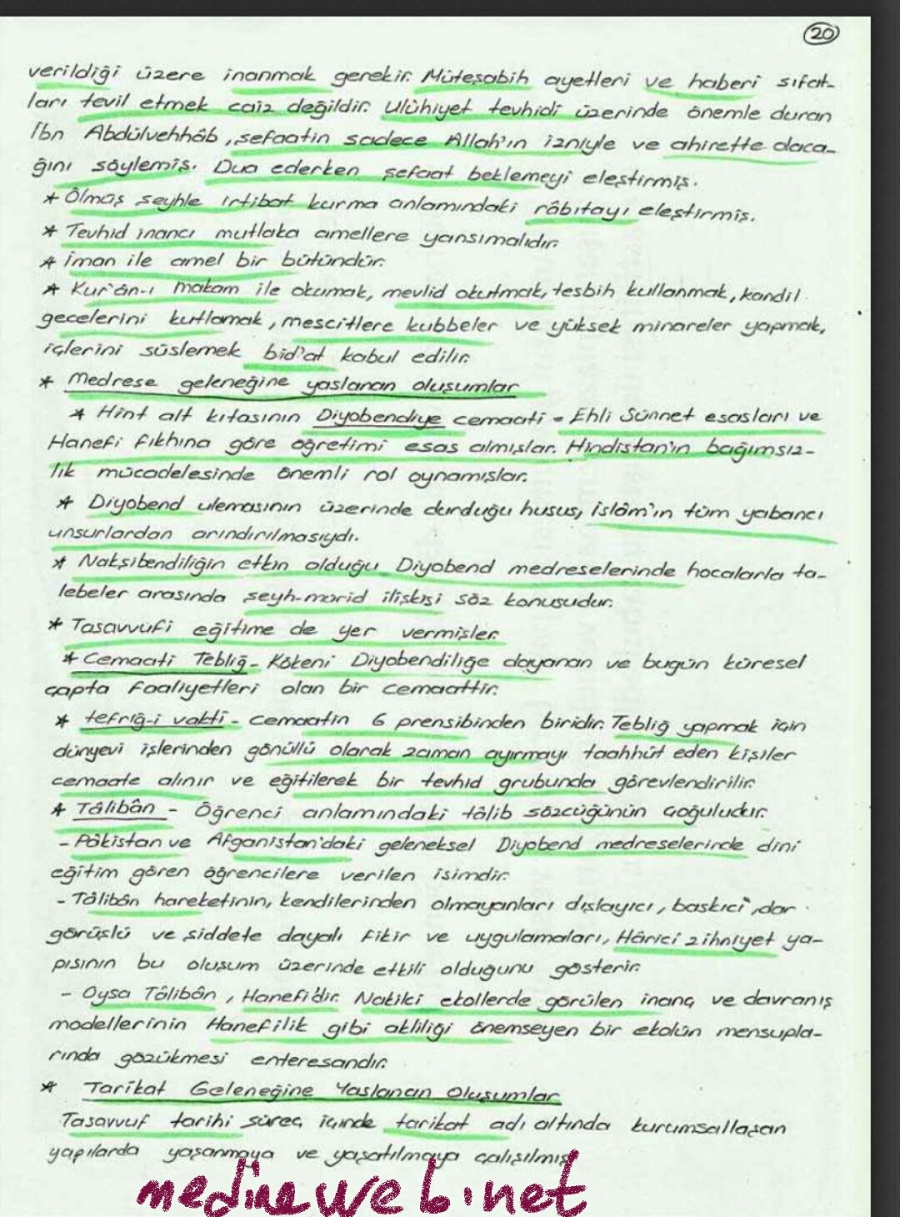 20
verildiği üzere inanmak gerekir. Müteşabih ayetleri ve haberi sıfat-
ları tevil etmek caiz değildir. Ulûhiyet tevhidi üzerinde önemle duran
İbn Abdülvehhâb, şefaatin sadece Allah'ın izniyle ve ahirette olaca-
ğını söylemiş. Dua ederken şefaat beklemeyi eleştirmiş.
* Ölmüş şeyhle irtibat kurma anlamındaki râbıtayı eleştirmiş.
* Tevhid inancı mutlaka amellere yansımalıdır.
* İman ile amel bir bütündür.
* Kur'ân-ı makam ile okumak, mevlid okutmak, tesbih kullanmak, kandil
gecelerini kutlamak, mescitlere kubbeler ve yüksek minareler yapmak,
içlerini süslemek bid'at kabul edilir.
* Medrese geleneğine yaslanan oluşumlar
* Hint alt kıtasının Diyobendiye cemaati - Ehli Sünnet esasları ve
Hanefi fıkhına göre öğretimi esas almışlar. Hindistan'ın bağımsız-
lık mücadelesinde önemli rol oynamışlar.
* Diyobend ulemasının üzerinde durduğu husus, İslâm'ın tüm yabancı
unsurlardan arındırılmasıydı.
* Nakşibendiliğin etkin olduğu Diyobend medreselerinde hocalarla ta-
lebeler arasında şeyh-mürid ilişkisi söz konusudur.
* Tasavvufi eğitime de yer vermişler.
* Cemaati Tebliğ - Kökeni Diyobendiliğe dayanan ve bugün küresel
çapta faaliyetleri olan bir cemaattir.
* tefriğ-i vakti - cemaatin 6 prensibinden biridir. Tebliğ yapmak için
dünyevi işlerinden gönüllü olarak zaman ayırmayı taahhüt eden kişiler
cemaate alınır ve eğitilerek bir tevhid grubunda görevlendirilir.
* Tâlibân - Öğrenci anlamındaki tâlib sözcüğünün çoğuludur.
- Pâkistan ve Afganistan'daki geleneksel Diyobend medreselerinde dini
eğitim gören öğrencilere verilen isimdir.
- Tâlibân hareketinin, kendilerinden olmayanları dışlayıcı, baskıcı, dar
görüşlü ve şiddete dayalı fikir ve uygulamaları, Hârici zihniyet ya-
pısının bu oluşum üzerinde etkili olduğunu gösterir.
- Oysa Tâlibân, Hanefi'dir. Nakilci ekollerde görülen inanç ve davranış
modellerinin Hanefilik gibi akliliği önemseyen bir ekolün mensupla-
rında gözükmesi enteresandır.
* Tarikat Geleneğine Yaslanan Oluşumlar
Tasavvuf tarihi süreç içinde tarikat adı altında kurumsallaşan
yapılarda yaşanmaya ve yaşatılmaya çalışılmış
medineweb.net